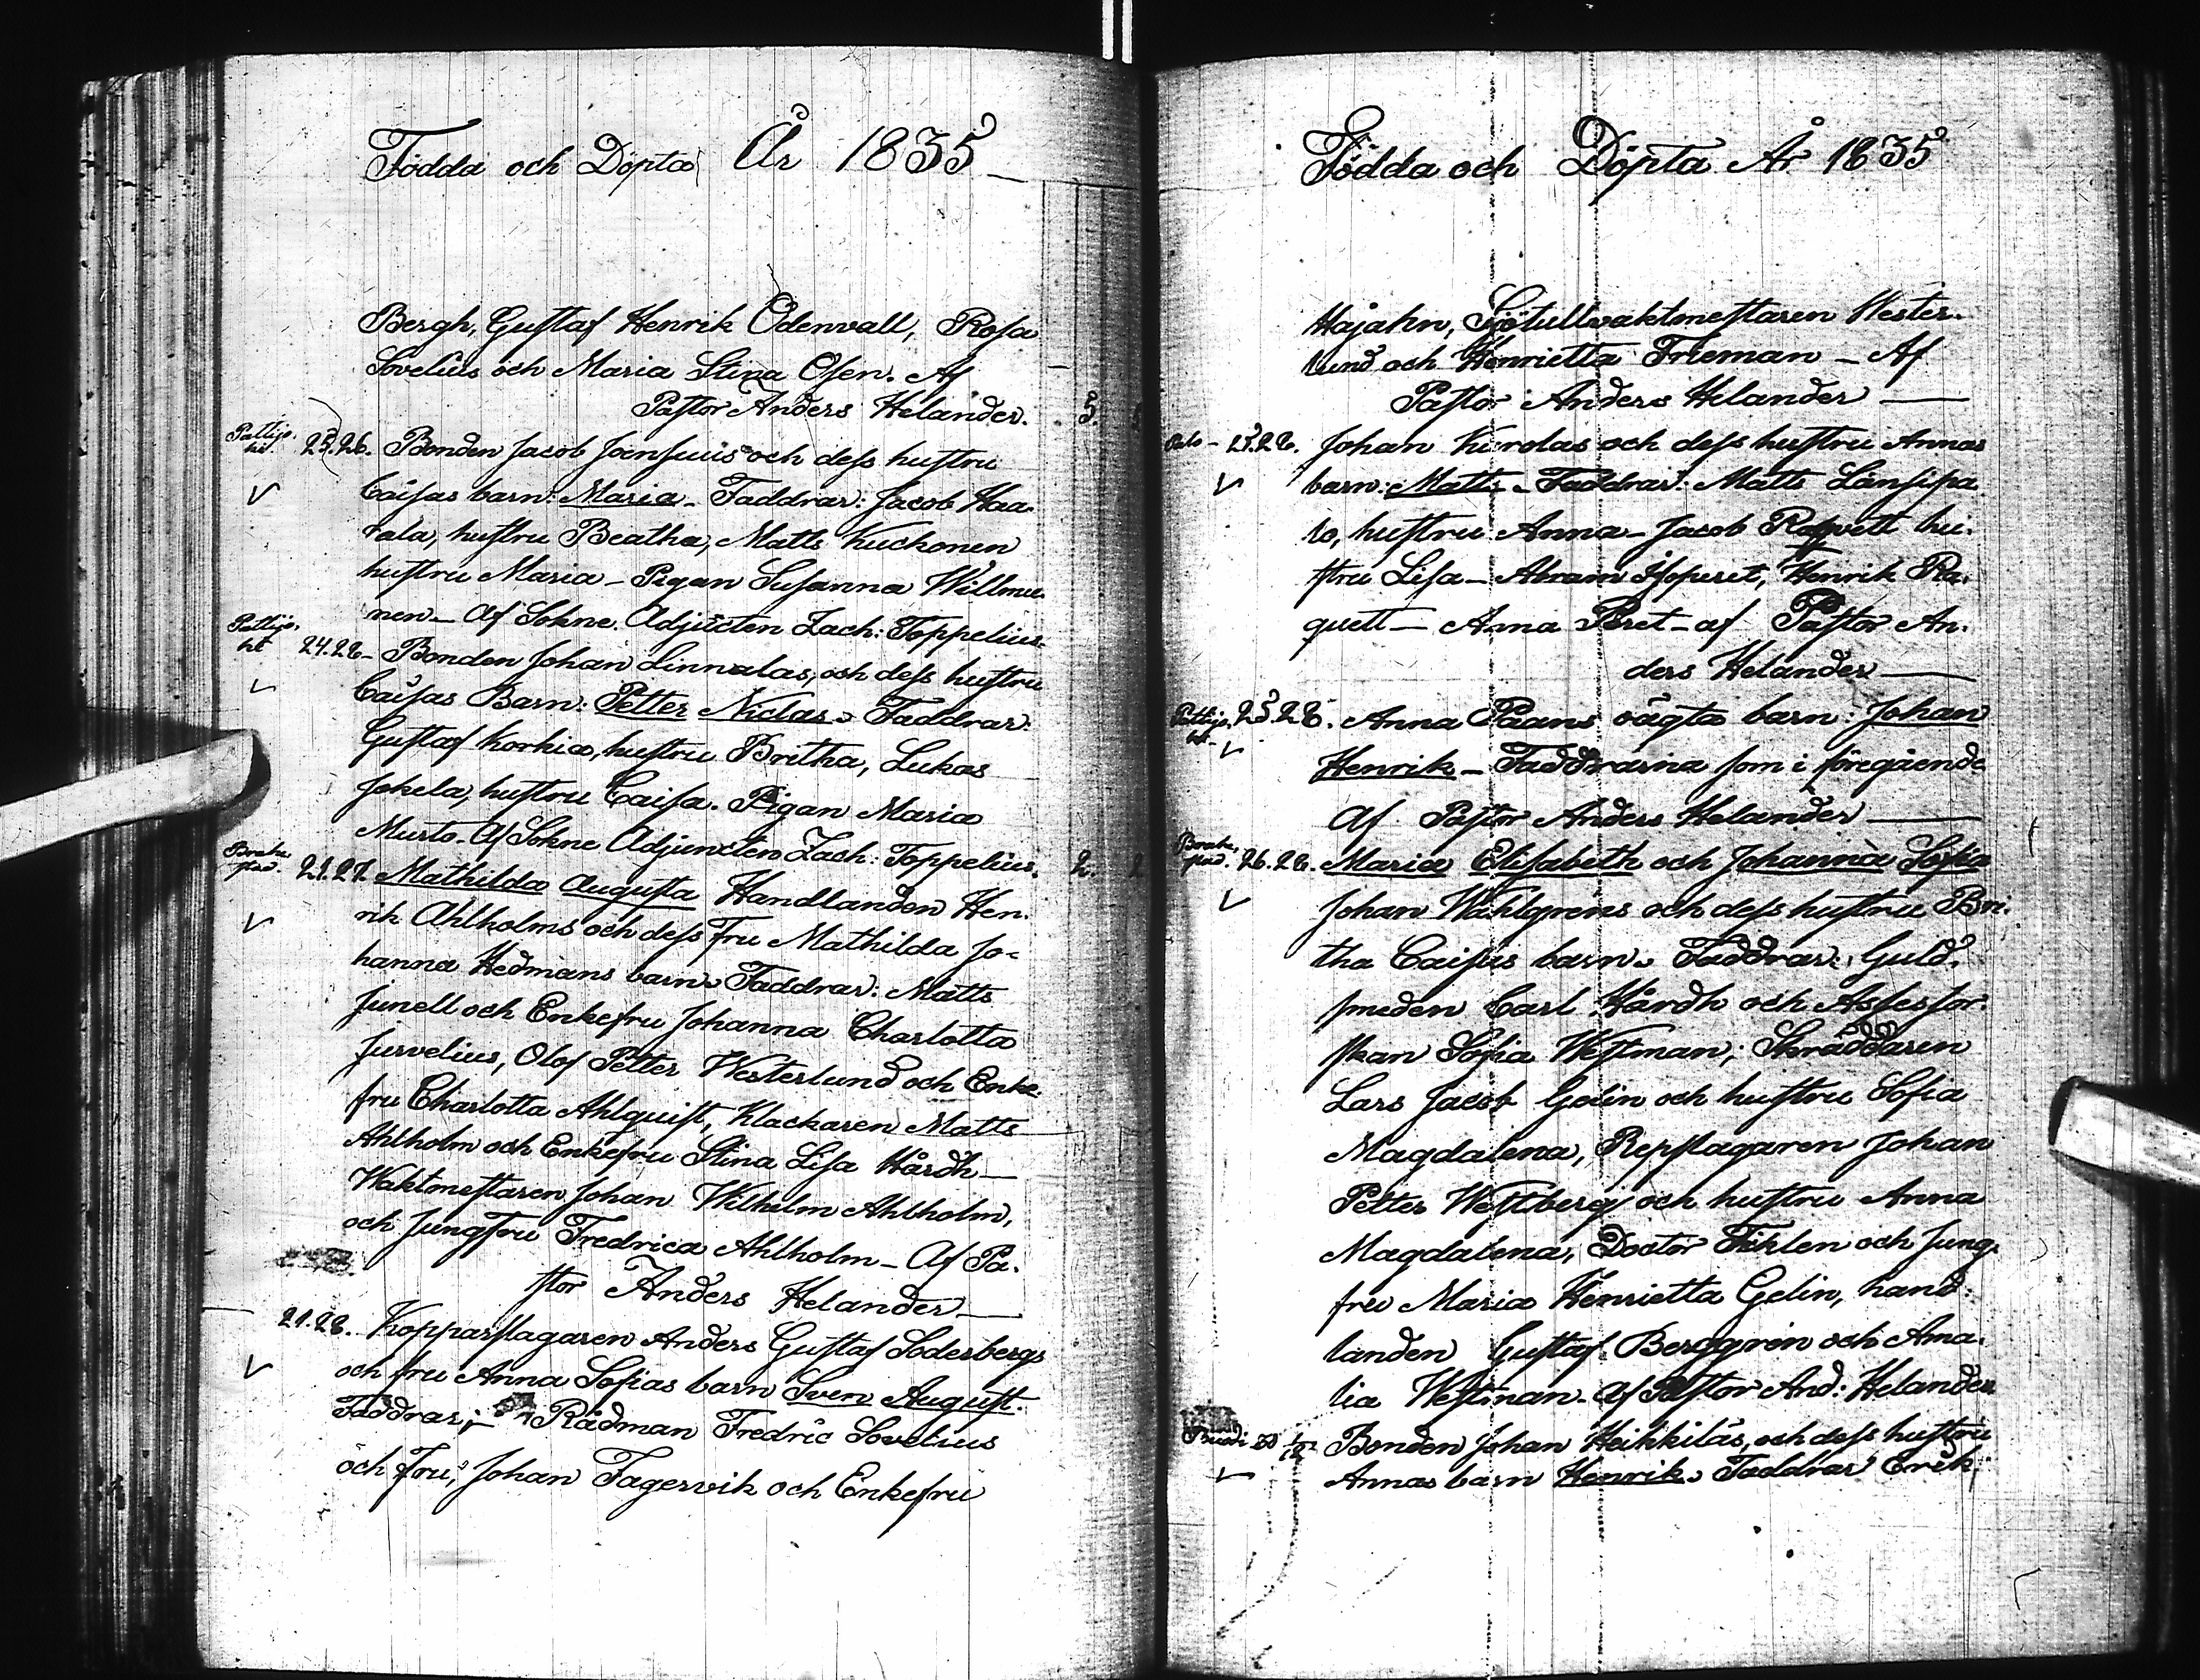 Födda och Döpta År 1835
Bergh, Gustaf Henrik Ödenvall, Rosa
Sovelius och Maria Stina Olsen. Af
Pastor Anders Helander. 5.
Pattijo.
ki. 23.26. Bonden Jacob och dess hustru
Caisas barn: Maria - Faddrar: Jacob Haa-
rala, hustru Beatha, Matts Kuckonen
hustru Maria - Pigan Susanna Willmu-
nen - Af Sokne Adjuncten Zach: Toppelius.
Pattijo.
ki 24.28 - Bonden Johan Linnalas, och dess hustru
Caisas Barn: Petter Niclas. Faddrar:
Gustaf Korkia, hustru Britha, Lukas
Jokela, hustru Caisa. Pigan Maria
Mursto. Af Sokne Adjuncten Zach: Toppelius. 2.
Brahe
stad. 21.27. Mathilda Augusta Handlanden Hen-
rik Ahlholms och dess Fru Mathilda Jo-
hanna Hedmans barn. Faddrar: Matts
Junell och Enkefru Johanna Charlotta
Jurvelius, Olof Petter Westerlund och Enke-
fru Charlotta Ahlquist, Klackaren Matts
Ahlholm och Enkefru Stina Lisa Hårdh -
Waktmestaren Johan Wilhelm Ahlholm,
och Jungfru Fredrica Ahlholm - Af Pa-
stor Anders Helander -
21.28. Kopparslagaren Anders Gustaf Söderbergs
och fru Anna Sofias barn Sven August.
Faddrar: Rådman Fredric Sovelius
och Fru, Johan Fagervik och Enkefru
Födda och Döpta År 1835
Hajahn, Sjötullvaktmestaren Wester-
lund och Henrietta Frieman - Af
Pastor Anders Helander -
Salo - 23.28. Johan Kurolas och dess hustru Annas
barn: Matts - Faddrar: Matts Länsipa-
lo, hustru Anna - Jacob hu-
stru Lisa - Abram Isoperet, Henrik Ra-
quett - Anna Peret - af Pastor An-
ders Helander -
Pattijo.
ki - 25.28. Anna Paans oägta barn: Johan
Henrik - Faddrarna som i föregående
Af Pastor Anders Helander -
Brahe
stad. 26.28. Maria Elisabeth och Johanna Sofia
Johan Wahlgrens och dess hustru Bri-
tha Caisas barn. Faddrar: Guld-
smeden Carl Hårdh och Assessor-
skan Sofia Westman; Skräddaren
Lars Jacob Gelin och hustru Sofia
Magdalena, Repslagaren Johan
Petter Westberg och hustru Anna
Magdalena, Doctor och Jung-
fru Maria Henrietta Gelin, hand-
landen Gustaf Berggren och Ama-
lia Westman. Af Pastor And: Helander
Bonden Johan Heikkiläs, och dess hustru
Annas barn Henrik. Faddrar Erik